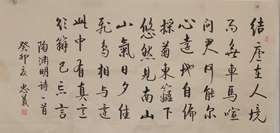 结庐在人境
而无车马喧
问君何能尔
心远地自偏
採菊东篱下
悠然见南山
山气日夕佳
飞鸟相与还
此中有真意
欲辩已忘言
陶渊明诗一首
癸卯夏